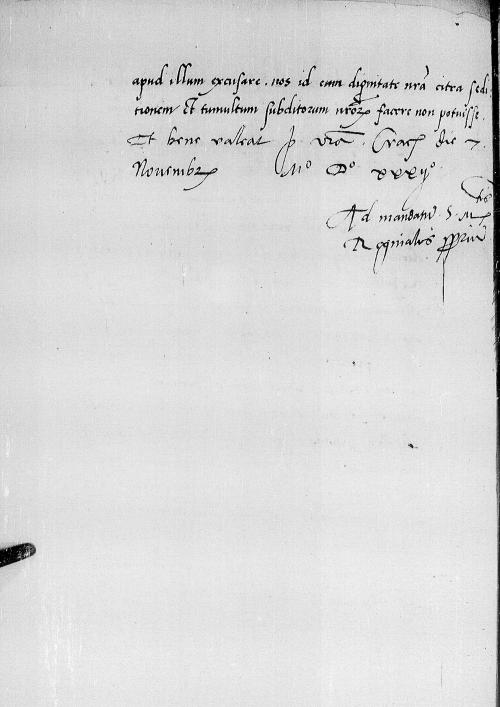 apud illum excusare. nos id cum dignitate nrã citra sedi
tionem et tumultum subditorum nrõrꝫ facere non potuisse.
Et bene valeat p vrã. Crac die 7
Novembrꝫ Mº Dº xxxijº
Ad mandatũ S. M tis
Reginalis ppriũ